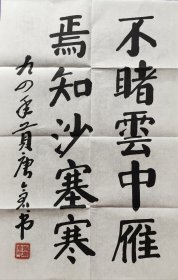 不睹雲中雁
焉知沙塞寒
九四年黄唐书